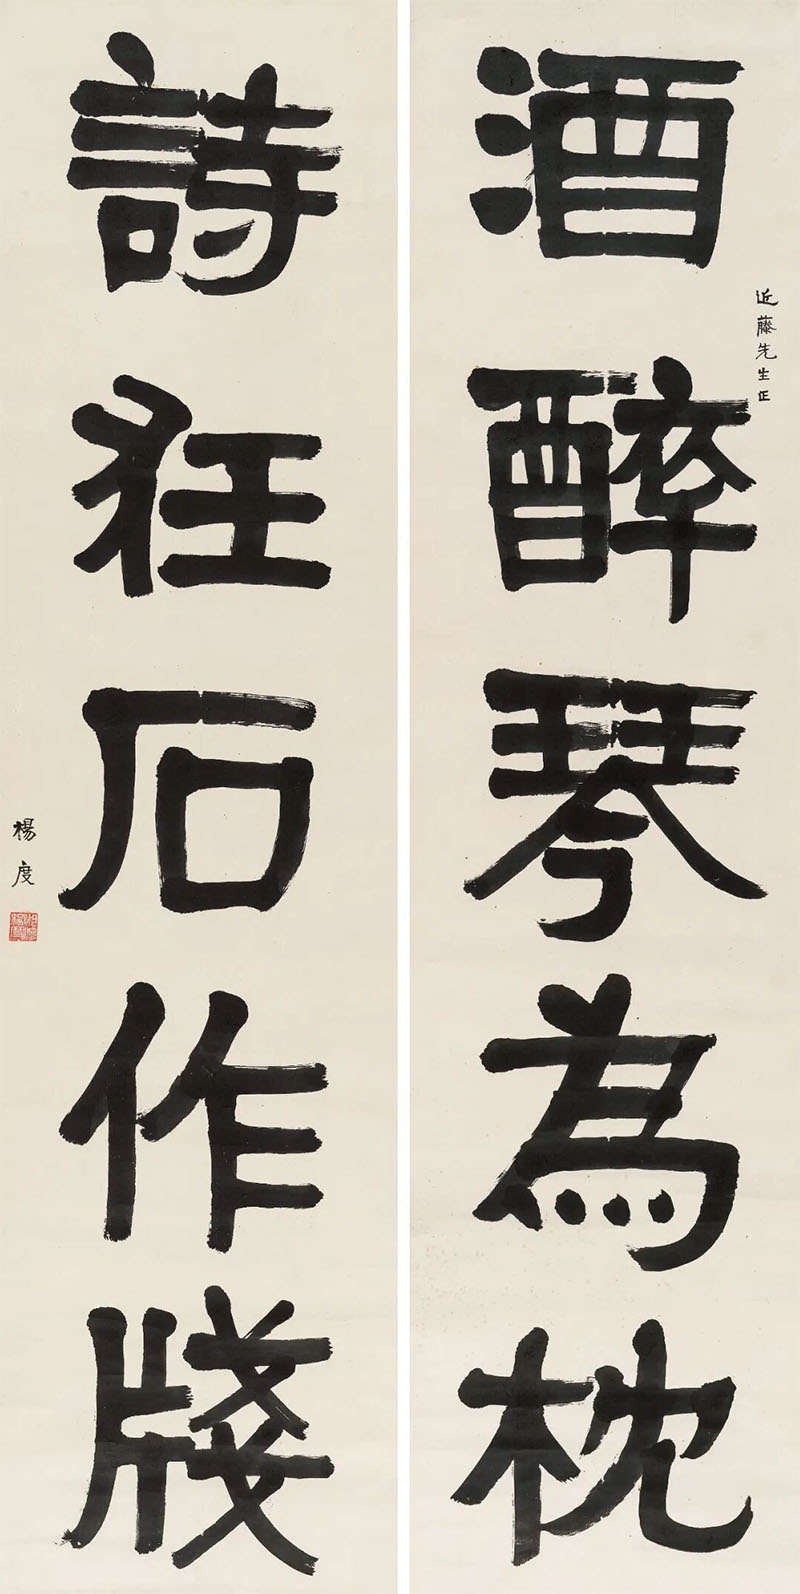 酒醉琴為枕
近藤先生正
詩狂石作牋
楊度